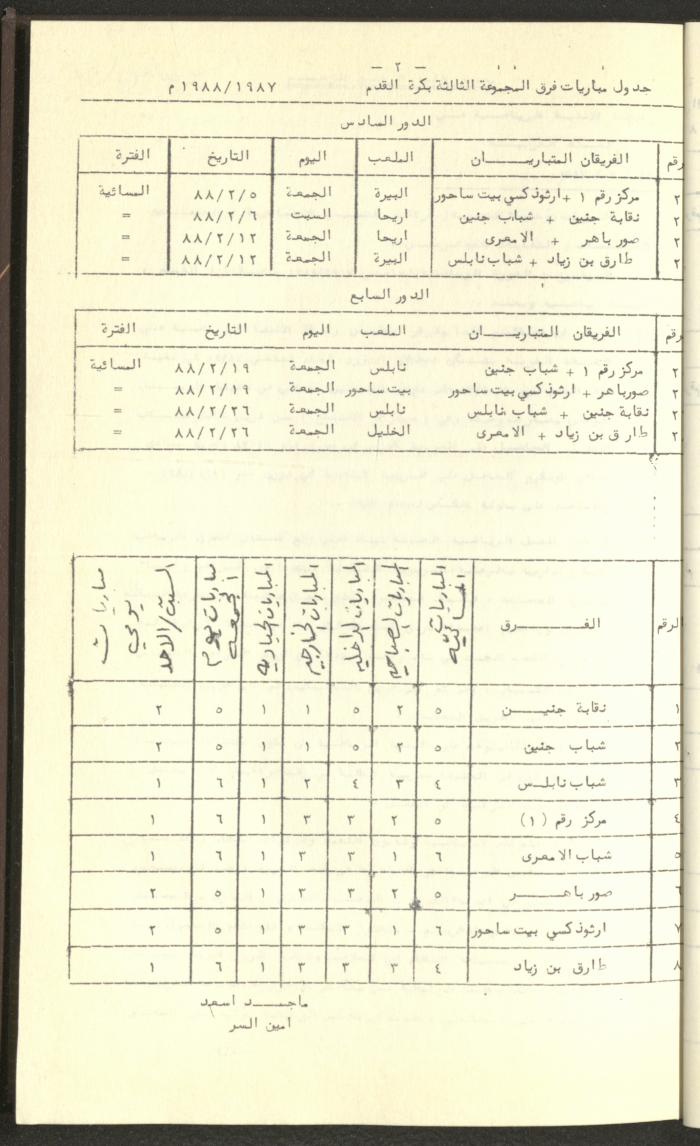 - ٢ -
جدول مباريات فرق المجموعة الثالثة بكرة القدم ١٩٨٨/١٩٨٧ م
الدور السادس
رقم الفريقان المتباريـــــان الملعب اليوم التاريخ الفترة
٢ مركز رقم ١ + ارثوذكسي بيت ساحور البيرة الجمعة ٨٨/٢/٥ المسائية
٢ نقابة جنين + شباب جنين اريحا السبت ٨٨/٢/٦ =
٢ صور باهر + الامعرى اريحا الجمعة ٨٨/٢/١٢ =
٢ طارق بن زياد + شباب نابلس البيرة الجمعة ٨٨/٢/١٢ =
الدور السابع
رقم الفريقان المتباريـــــان الملعب اليوم التاريخ الفترة
٢ مركز رقم ١ + شباب جنين نابلس الجمعة ٨٨/٢/١٩ المسائية
٢ صورباهر + ارثوذكسي بيت ساحور بيت ساحور الجمعة ٨٨/٢/١٩ =
٢ نقابة جنين + شباب نابلس نابلس الجمعة ٨٨/٢/٢٦ =
٢ طارق بن زياد + الامعرى الخليل الجمعة ٨٨/٢/٢٦ =
الرقم الفـــــــرق المباريات المسائيه المباريات الصباحيه المباريات الداخليه المباريات الخارجيه المباريات الحياديه مباريات يوم الجمعه مباريات يومي السبت/الاحد
١ نقابة جنيـــن ٥ ٢ ٥ ١ ١ ٥ ٢
٢ شباب جنين ٥ ٢ ٥ ١ ١ ٥ ٢
٣ شباب نابلـس ٤ ٣ ٤ ٢ ١ ٦ ١
٤ مركز رقم (١) ٥ ٢ ٣ ٣ ١ ٦ ١
٥ شباب الامعرى ٦ ١ ٣ ٣ ١ ٦ ١
٦ صور باهـــــر ٥ ٢ ٣ ٣ ١ ٥ ٢
٧ ارثوذكسي بيت ساحور ٦ ١ ٣ ٣ ١ ٥ ٢
٨ طارق بن زياد ٤ ٣ ٣ ٣ ١ ٦ ١
ماجـــد اسعد
امين السر